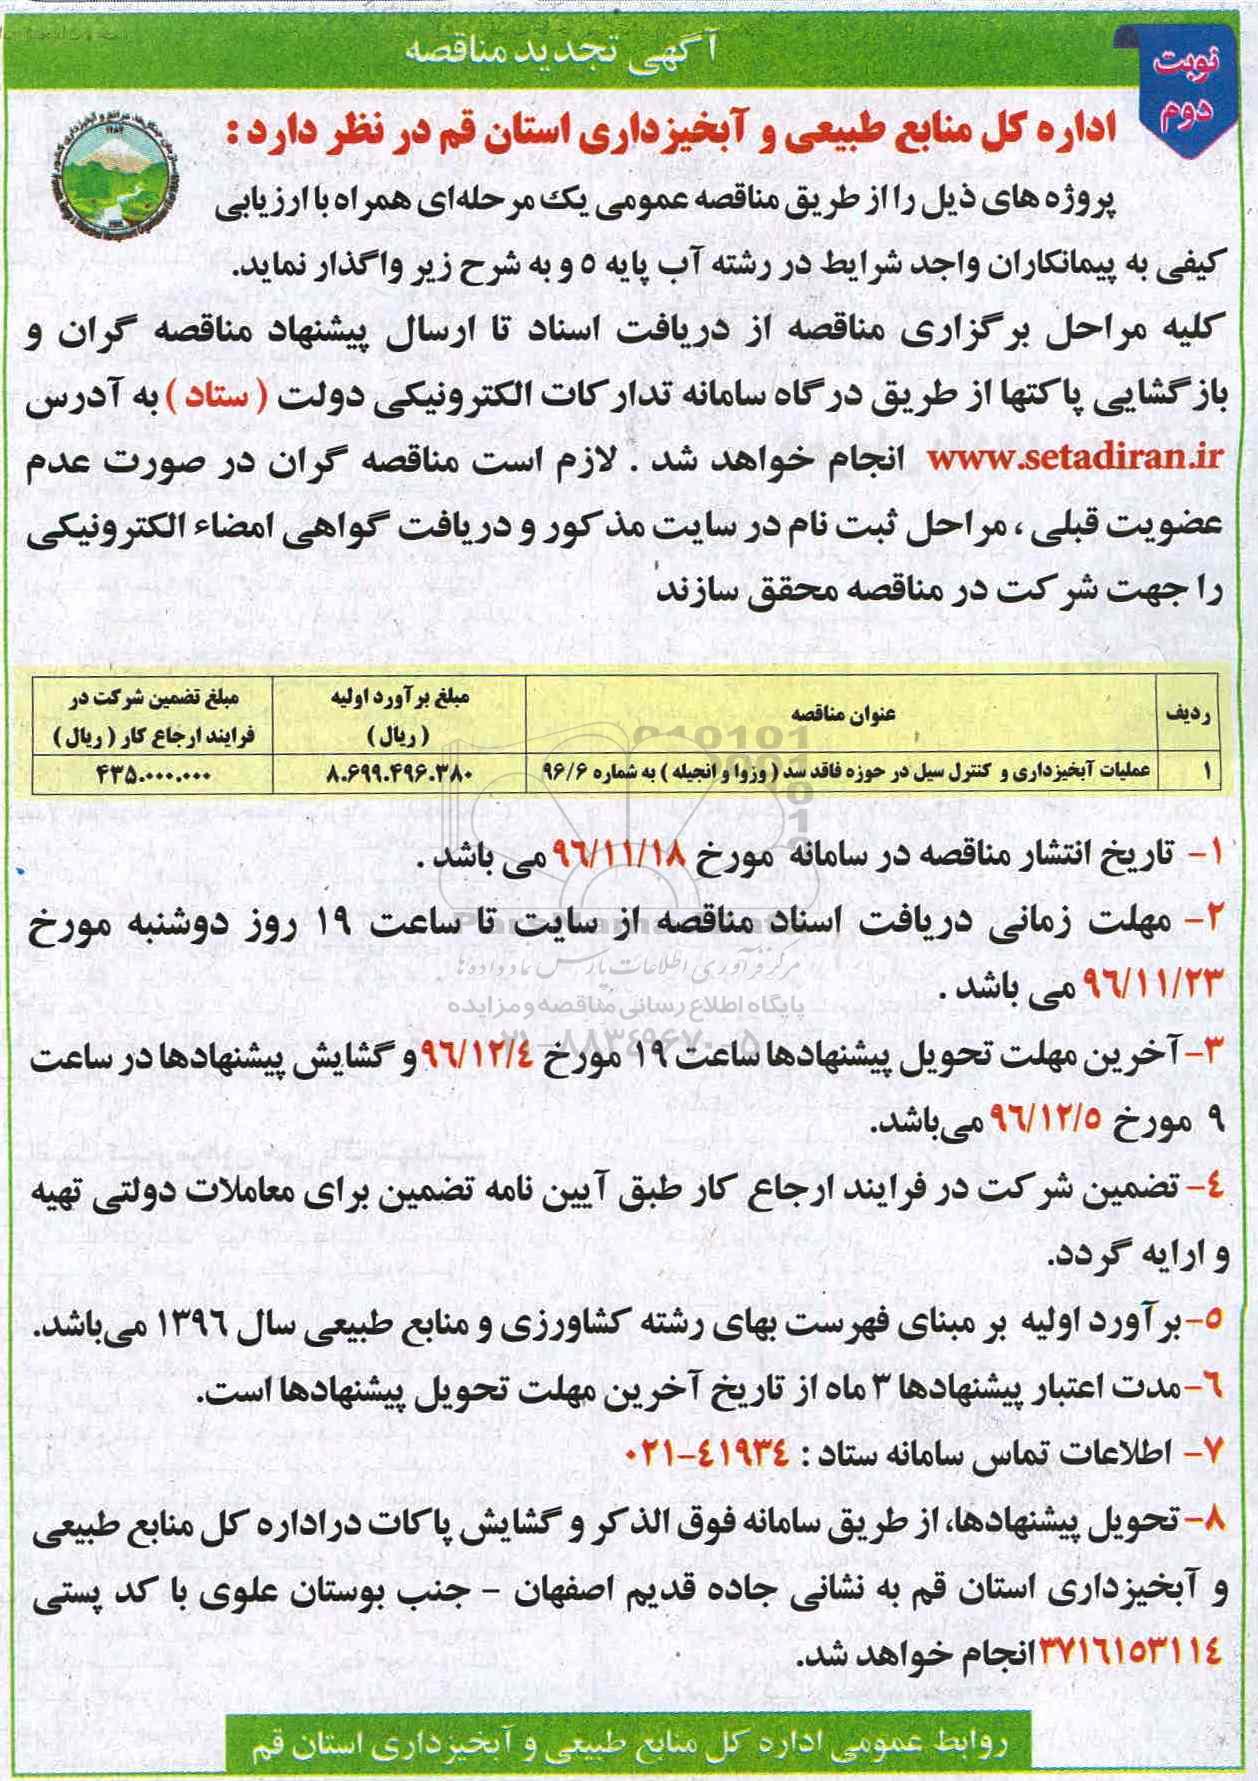 آگهی تجدید مناقصه
نوبت
دوم
اداره کل منابع طبیعی و آبخیزداری استان قم در نظر دارد :
پروژه های ذیل را از طریق مناقصه عمومی یک مرحله‌ای همراه با ارزیابی
کیفی به پیمانکاران واجد شرایط در رشته آب پایه ۵ و به شرح زیر واگذار نماید.
کلیه مراحل برگزاری مناقصه از دریافت اسناد تا ارسال پیشنهاد مناقصه گران و
بازگشایی پاکتها از طریق درگاه سامانه تدارکات الکترونیکی دولت ( ستاد ) به آدرس
www.setadiran.ir انجام خواهد شد . لازم است مناقصه گران در صورت عدم
عضویت قبلی ، مراحل ثبت نام در سایت مذکور و دریافت گواهی امضاء الکترونیکی
را جهت شرکت در مناقصه محقق سازند
ردیف | عنوان مناقصه | مبلغ برآورد اولیه ( ریال ) | مبلغ تضمین شرکت در فرایند ارجاع کار ( ریال )
۱ | عملیات آبخیزداری و کنترل سیل در حوزه فاقد سد ( وزوا و انجیله ) به شماره ۹۶/۶ | ۸.۶۹۹.۴۹۶.۳۸۰ | ۴۳۵.۰۰۰.۰۰۰
۱- تاریخ انتشار مناقصه در سامانه مورخ ۹۶/۱۱/۱۸ می باشد .
۲- مهلت زمانی دریافت اسناد مناقصه از سایت تا ساعت ۱۹ روز دوشنبه مورخ
۹۶/۱۱/۲۳ می باشد .
مرکز فرآوری اطلاعات پارس نماد داده‌ها
پایگاه اطلاع رسانی مناقصه و مزایده
۰۲۱-۸۸۳۴۹۶۷۰-۵
۳- آخرین مهلت تحویل پیشنهادها ساعت ۱۹ مورخ ۹۶/۱۲/۴ و گشایش پیشنهادها در ساعت
۹ مورخ ۹۶/۱۲/۵ می‌باشد.
۴- تضمین شرکت در فرایند ارجاع کار طبق آیین نامه تضمین برای معاملات دولتی تهیه
و ارایه گردد.
۵- برآورد اولیه بر مبنای فهرست بهای رشته کشاورزی و منابع طبیعی سال ۱۳۹۶ می‌باشد.
۶- مدت اعتبار پیشنهادها ۳ ماه از تاریخ آخرین مهلت تحویل پیشنهادها است.
۷- اطلاعات تماس سامانه ستاد : ۴۱۹۳۴-۰۲۱
۸- تحویل پیشنهادها، از طریق سامانه فوق الذکر و گشایش پاکات در اداره کل منابع طبیعی
و آبخیزداری استان قم به نشانی جاده قدیم اصفهان - جنب بوستان علوی با کد پستی
۳۷۱۶۱۵۳۱۱۴ انجام خواهد شد.
روابط عمومی اداره کل منابع طبیعی و آبخیزداری استان قم